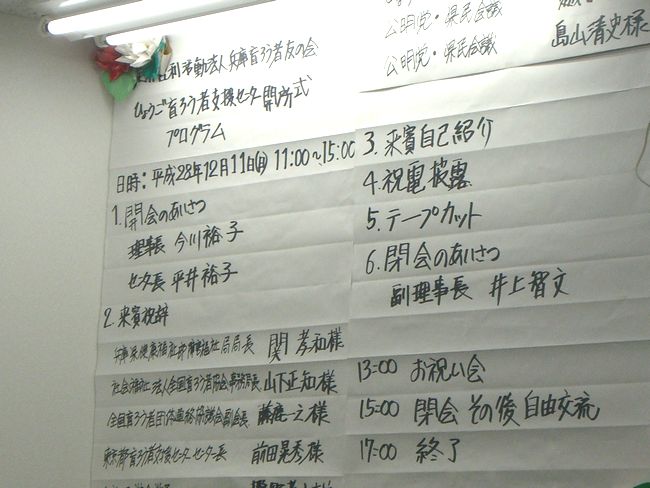 利活動法人兵庫盲ろう者友の会
ひょうご盲ろう者支援センター開所式
プログラム
日時：平成28年12月11日(日) 11:00〜15:00
1. 開会のあいさつ
理事長 今川裕子
センター長 平井裕子
2. 来賓祝辞
兵庫県健康福祉部障害福祉局局長 関 孝和様
社会福祉法人全国盲ろう者協会事務局長 山下正知様
全国盲ろう者団体連絡協議会副会長 一之様
東京都盲ろう者支援センターセンター長 前田晃秀様
公明党・県民会議
公明党・県民会議 島山清史様
3. 来賓自己紹介
4. 祝電披露
5. テープカット
6. 閉会のあいさつ
副理事長 井上智文
13:00 お祝い会
15:00 閉会 その後 自由交流
17:00 終了